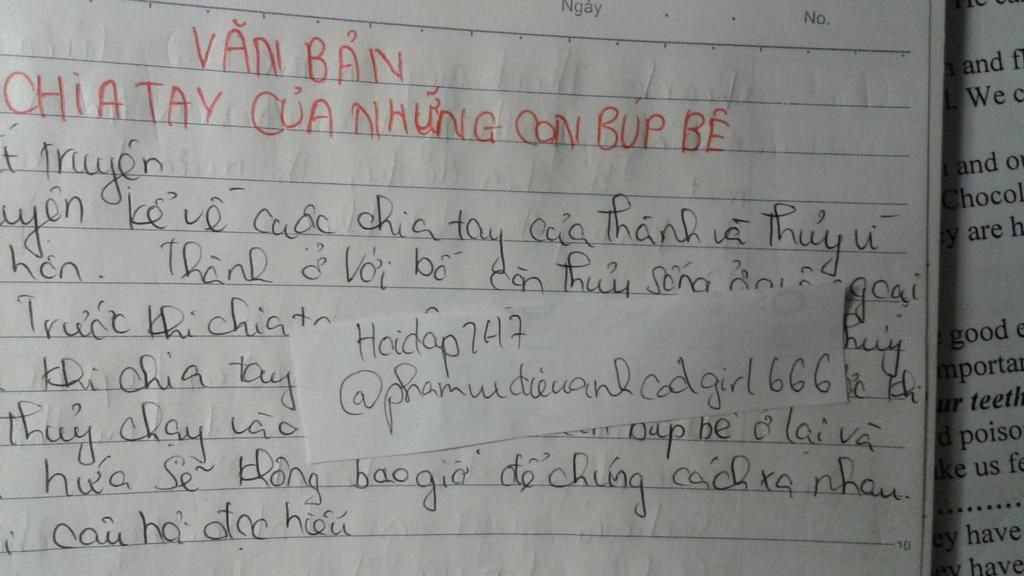 Ngày No.
VĂN BẢN
CHIA TAY CỦA NHỮNG CON BÚP BÊ
t truyện
uyện kể về cuộc chia tay của Thành và Thủy vì
hôn. Thành ở với bố còn Thủy sống goại
Trước khi chia ta hủy
khi chia tay khi
Thủy chạy vào búp bê ở lại và
hứa sẽ không bao giờ để chúng cách xa nhau.
i câu hỏi đọc hiểu
Hoidap247
@phamvudieuanhcodgirl666
10
and fl
. We c
and ou
Chocol
y are h
good e
mportan
ur teeth
d poiso
ke us fe
..........
ey have
ey have